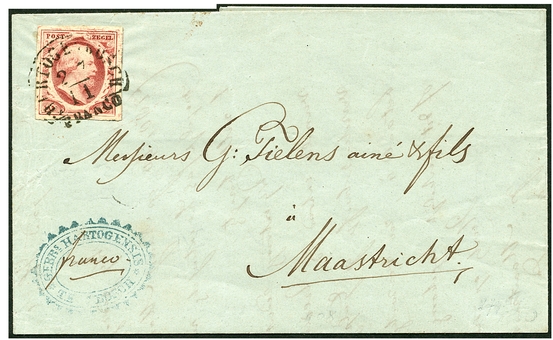 POST ZEGEL
FRANCO
Messieurs G: Tielens ainé & fils
à
Maastricht.
GEBRS. HARTOGENSIS
franco